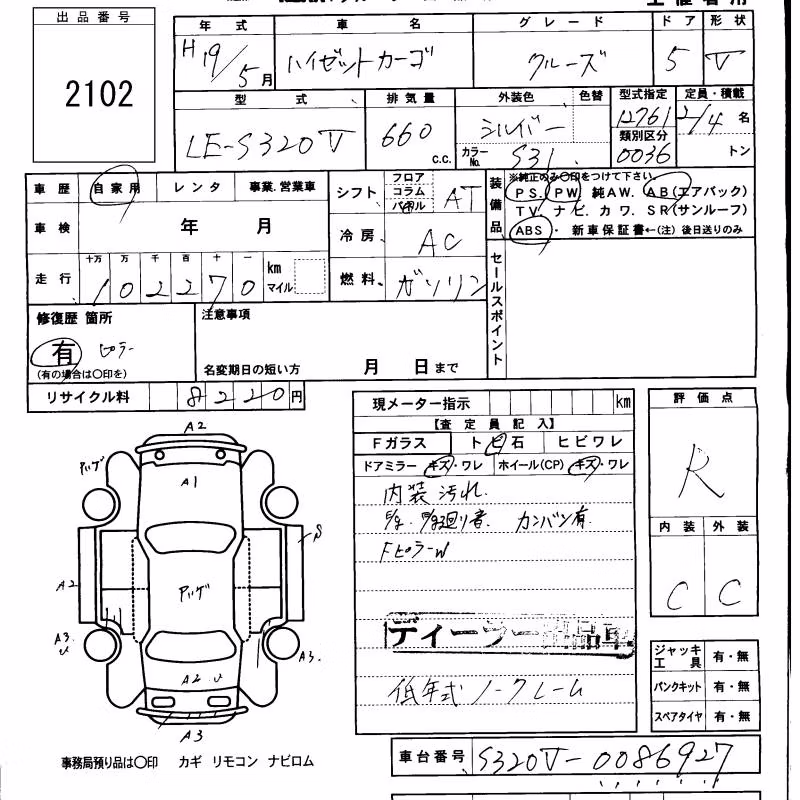 出品番号
2102
年式 車名 グレード ドア 形状
H19/5月 ハイゼットカーゴ クルーズ 5 V
型式 排気量 外装色 色替 型式指定 定員・積載
LE-S320V 660 C.C. シルバー 12761 2/4 名
カラーNo. S31 類別区分 0036 トン
車歴 自家用 レンタ 事業.営業車
シフト フロア コラム パネル AT
装備品 ※純正のみ〇印をつけて下さい。
PS. PW 純AW. AB(エアバック)
TV. ナビ. カワ. SR(サンルーフ)
ABS・ 新車保証書←(注) 後日送りのみ
車検 年 月
冷房 AC
走行 十万 万 千 百 十 一
102270 km マイル
燃料 ガソリン
セールスポイント
修復歴 箇所
有 ピラー
(有の場合は〇印を)
注意事項
名変期日の短い方 月 日まで
リサイクル料 8220円
現メーター指示 km
【査定員記入】
Fガラス トビ石 ヒビワレ
ドアミラー キズ・ワレ ホイール(CP) キズ・ワレ
内装汚れ.
カンバン有.
FピラーW
ディーラー出品車
低年式 ノークレーム
評価点
R
内装 外装
C C
ジャッキ工具 有・無
パンクキット 有・無
スペアタイヤ 有・無
A2
A1
A2
S
A3
A3.
A2
A3
事務局預り品は〇印 カギ リモコン ナビロム
車台番号 S320V-0086927